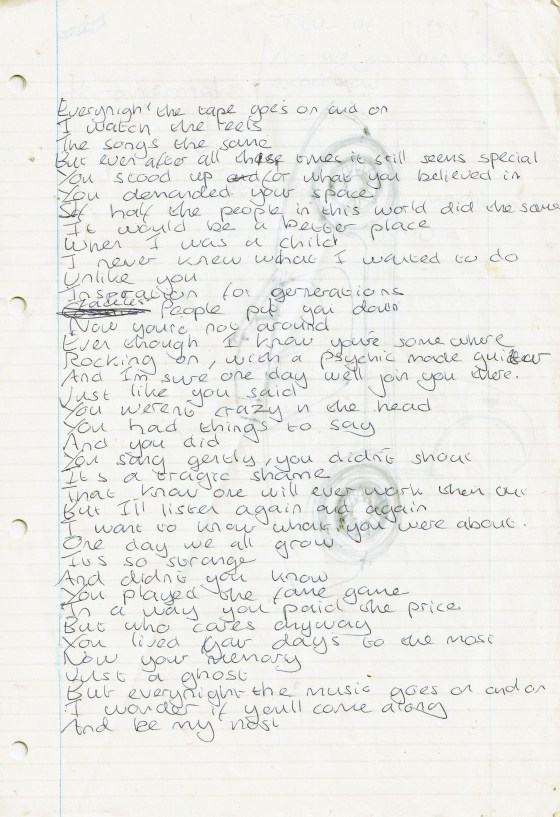 Everynight the tape goes on and on
I watch the reels
The songs the same
But ever after all these times it still seems special
You stood up for what you believed in
You demanded your space
If half the people in this world did the same
It would be a better place
When I was a child
I never knew what I wanted to do
Unlike you
Inspiration for gernerations
People put you down
Now youre not around
Even though I know you're somewhere
Rocking on, with a psychic made guitar
And I'm sure one day we'll join you there.
Just like you said
You werent crazy n the head
You had things to say
And you did
You sang gently, you didn't shout
It's a tragic shame
That know one will ever work them out
But I'll listen again and again
I want to know what you were about.
One day we all grow
It's so strange
And didn't you know
You played the fame game
In a way you paid the price
But who cares anyway
You lived your days to the most
Now your memory
Just a ghost
But everynight the music goes on and on
I wonder if youll come along
And be my host